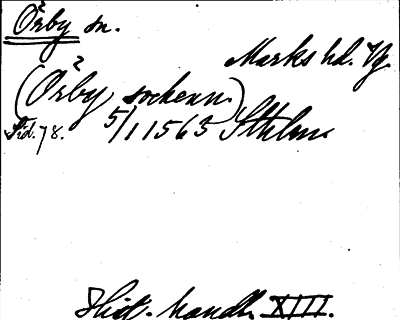 Örby sn.
Marks hd. Vg
(Örby sockenn.)
Sid. 78. 5/1 1563 Sthlm
Hist. handl. XIII.